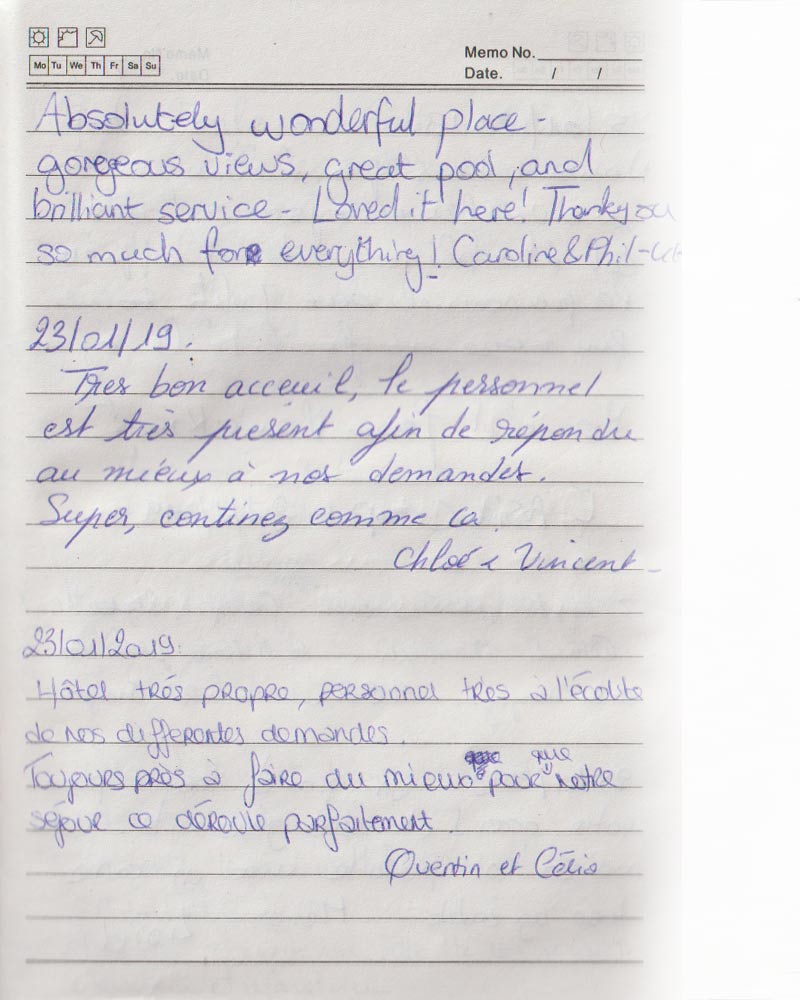 Mo Tu We Th Fr Sa Su
Memo No.
Date. / /
Absolutely wonderful place -
gorgeous views, great pool, and
brilliant service - Loved it here! Thankyou
so much for everything! Caroline & Phil -
23/01/19.
Tres bon acceuil, le personnel
est très présent afin de répondre
au mieux à nos demandes.
Super, continez comme ca
Chloé & Vincent -
23/01/2019.
Hôtel trés propre, personnel tres à l'écoute
de nos differentes demandes.
Toujours près à faire du mieux pour que notre
séjour ce déroule parfaitement.
Quentin et Célia